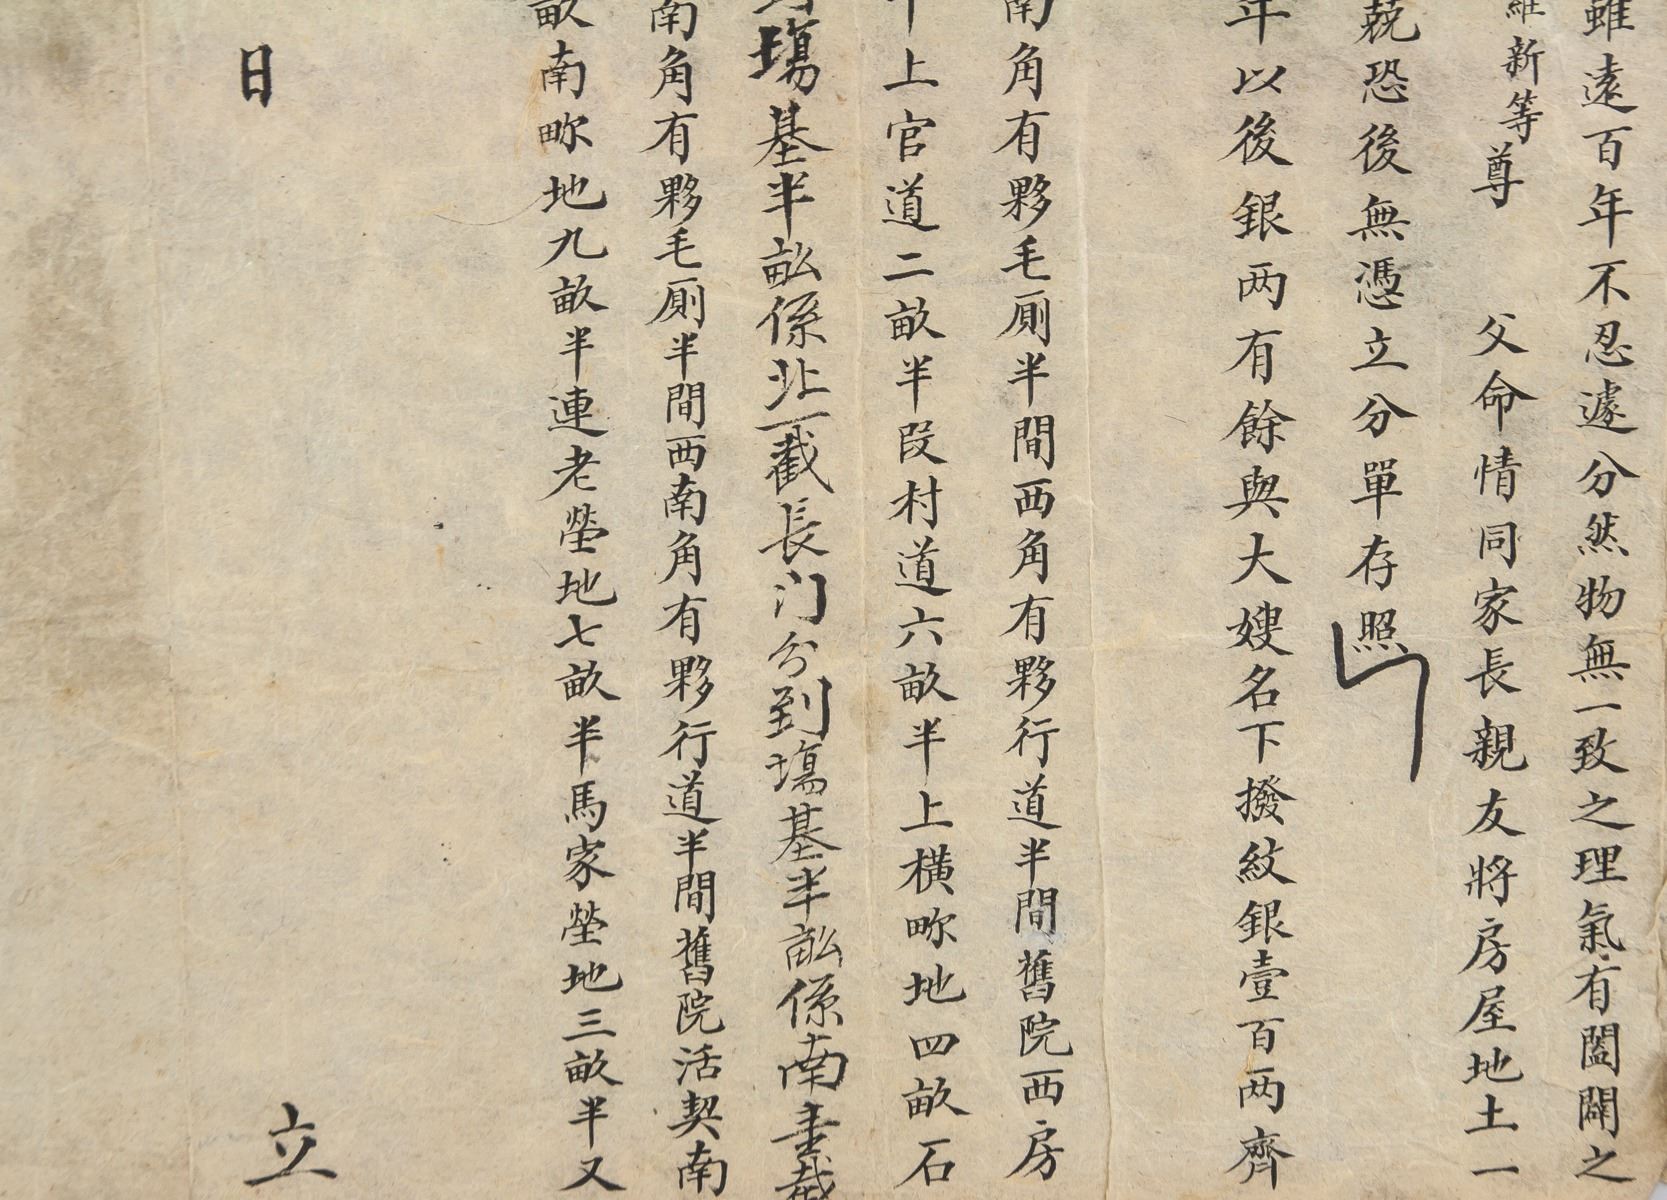 雖遠百年不忍遽分然物無一致之理氣有闔闢之
新等尊 父命情同家長親友將房屋地土一
兢恐後無憑立分單存照
年以後銀两有餘與大嫂名下撥紋銀壹百两齊
南角有夥毛厠半間西角有夥行道半間舊院西房
上官道二畝半段村道六畝半上橫畛地四畝石
塲基半畝係北一截長门分到塲基半畝係南畫截
南角有夥毛厠半間西南角有夥行道半間舊院活契南
畝南畛地九畝半連老塋地七畝半馬家塋地三畝半又
日 立